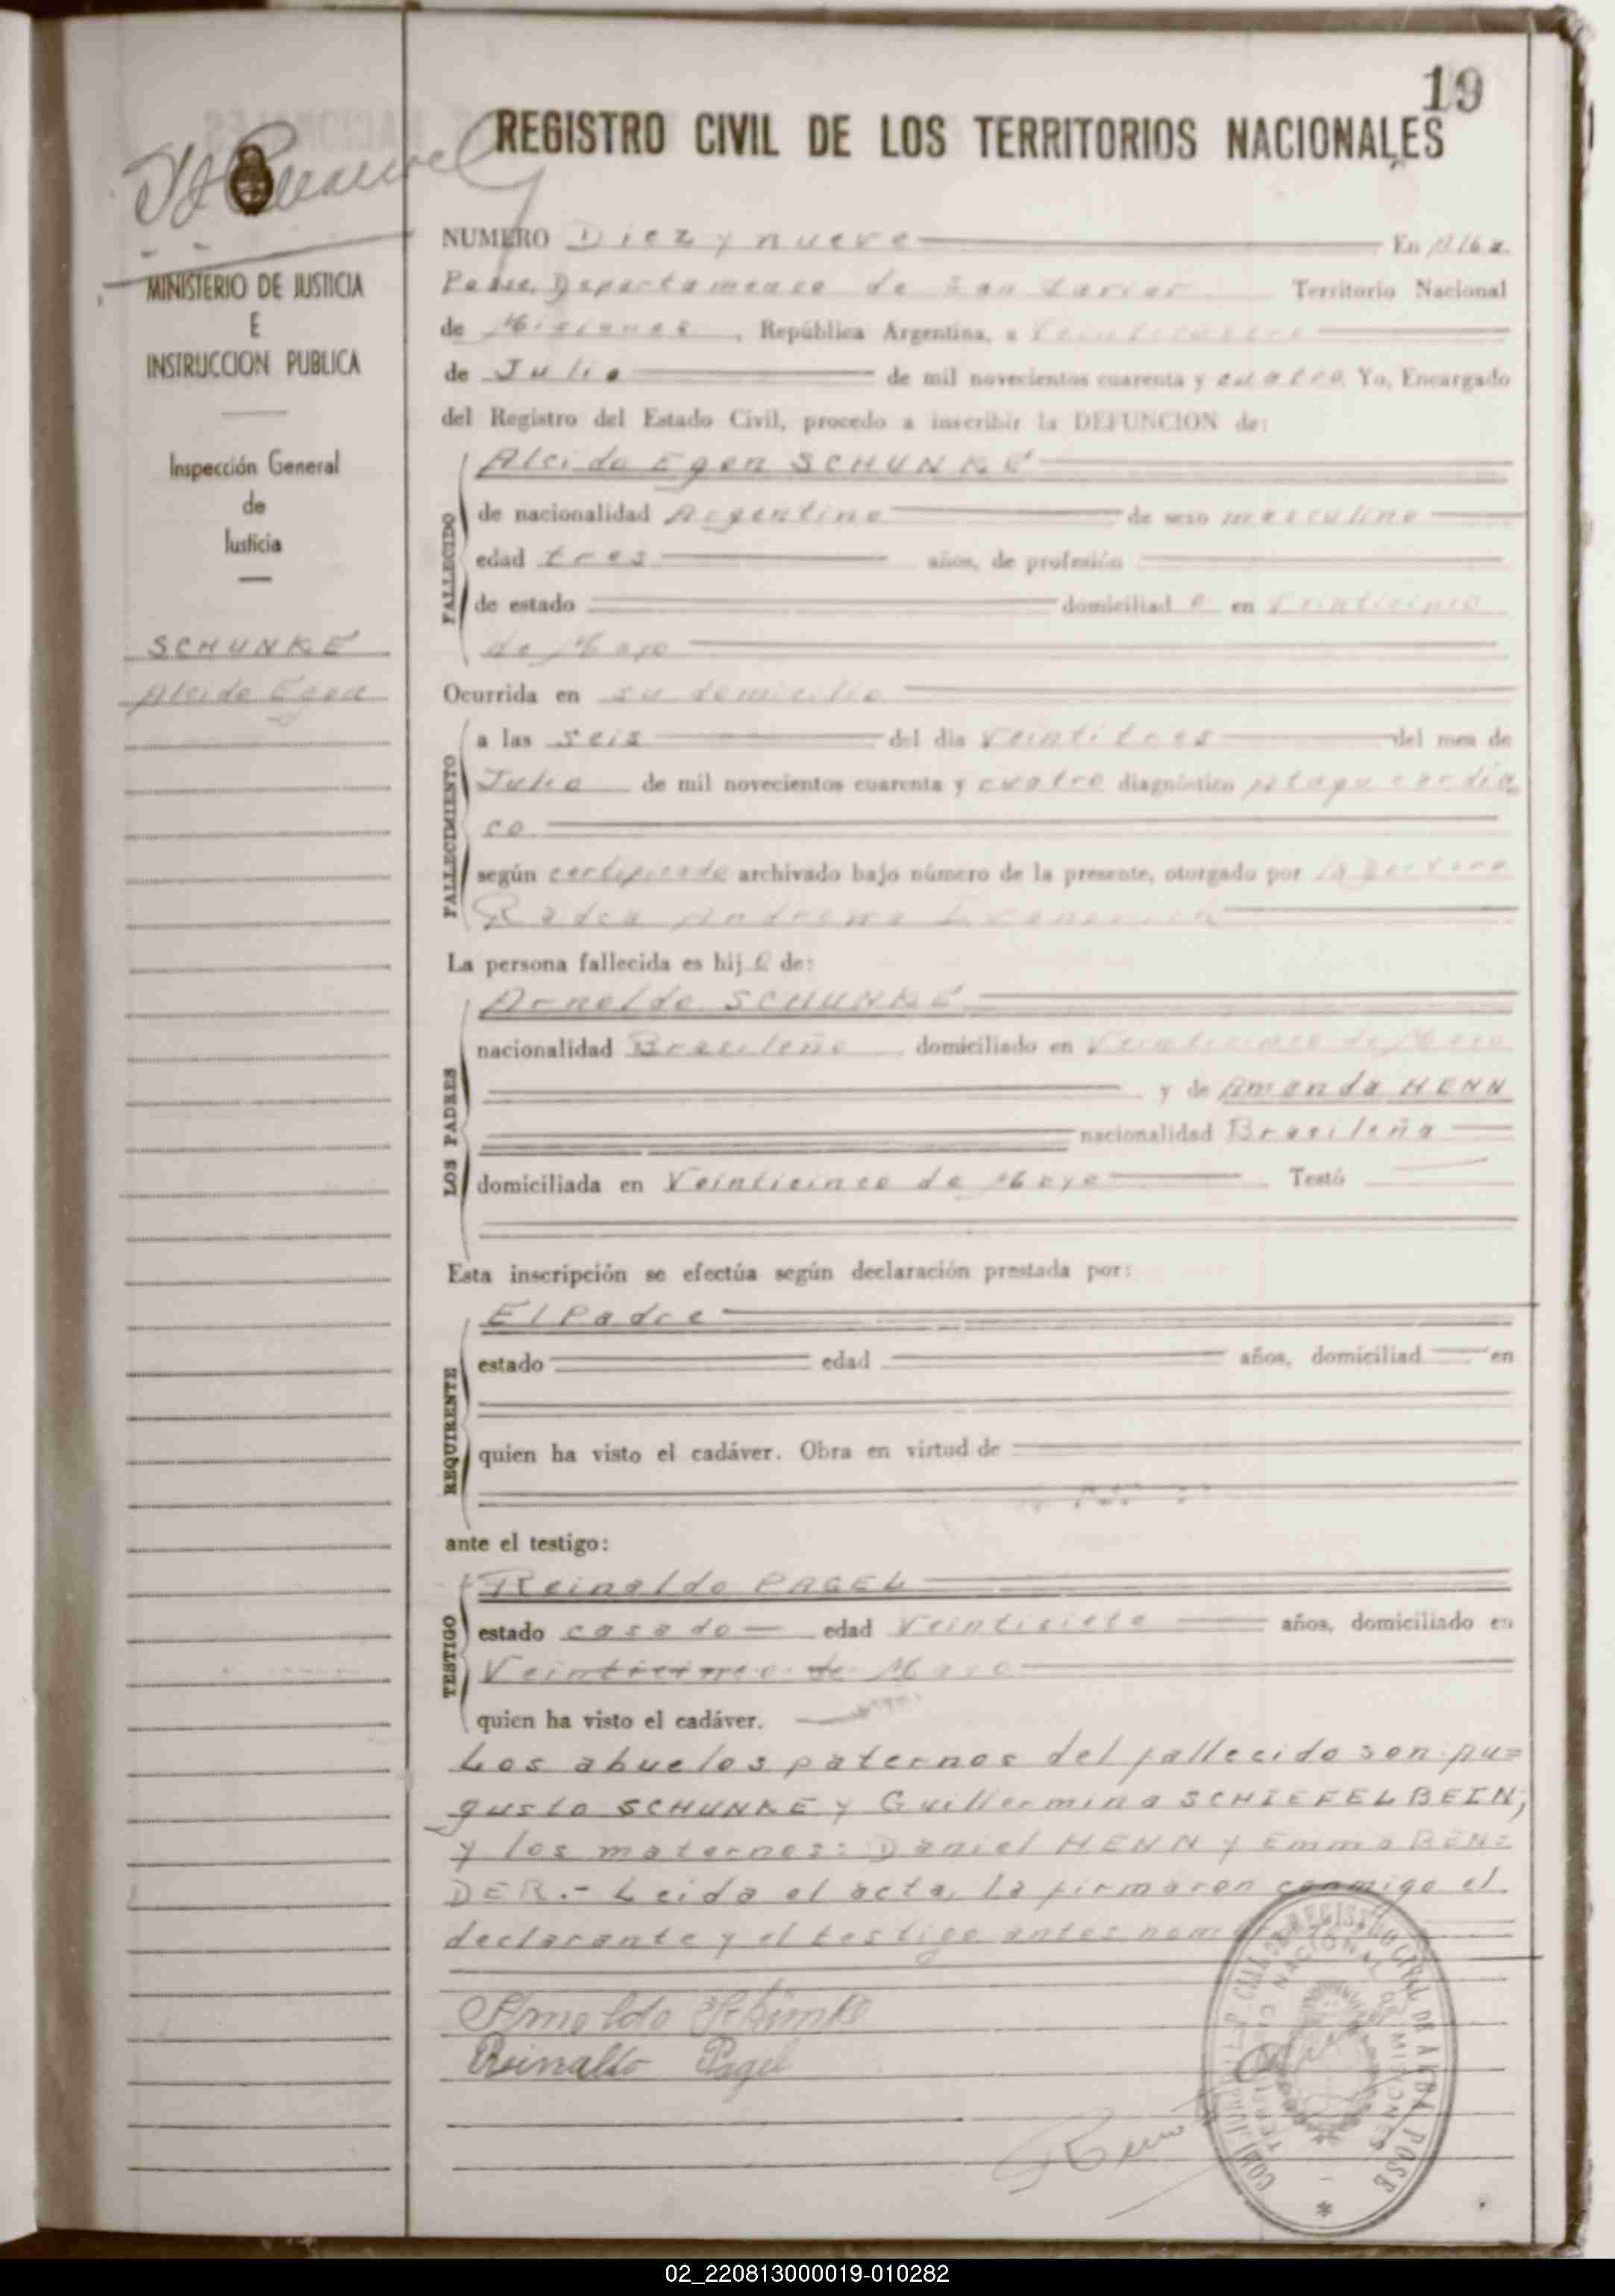 19
REGISTRO CIVIL DE LOS TERRITORIOS NACIONALES
MINISTERIO DE JUSTICIA
E
INSTRUCCION PUBLICA
Inspección General
de
Justicia
SCHUNKE
Alcido Egon
NUMERO Diez y nueve En Alba
Posse, Departamento de San Xavier Territorio Nacional
de Misiones, República Argentina, a Veinticuatro
de Julio de mil novecientos cuarenta y cuatro Yo, Encargado
del Registro del Estado Civil, procedo a inscribir la DEFUNCION de:
FALLECIDO
Alcido Egon SCHUNKE
de nacionalidad Argentino de sexo masculino
edad tres años, de profesión
de estado domiciliad o en Veinticinco
de Mayo
Ocurrida en su domicilio
FALLECIMIENTO
a las seis del día Veintitres del mes de
Julio de mil novecientos cuarenta y cuatro diagnóstico Ataque cardía
co
según certificado archivado bajo número de la presente, otorgado por la partera
La persona fallecida es hij o de:
LOS PADRES
Arnoldo SCHUNKE
nacionalidad Brasileño domiciliado en Veinticinco de Mayo
y de Amanda HENN
nacionalidad Brasileña
domiciliada en Veinticinco de Mayo Testó
Esta inscripción se efectúa según declaración prestada por:
REQUIRENTE
El Padre
estado edad años, domiciliad en
quien ha visto el cadáver. Obra en virtud de
ante el testigo:
TESTIGO
Reinaldo PAGEL
estado casado edad Veintisiete años, domiciliado en
Veinticinco de Mayo
quien ha visto el cadáver.
Los abuelos paternos del fallecido son: Au=
gusto SCHUNKE y Guillermina SCHIEFELBEIN;
y los maternos: Daniel HENN y Emma BEN=
DER.- Leida el acta, la firmaron conmigo el
declarante y el testigo antes nom
Arnoldo Schünke
Reinaldo Pagel
REGISTRO CIVIL DE ALBA POSE
NACIONAL DE MISIONES
02_220813000019-010282